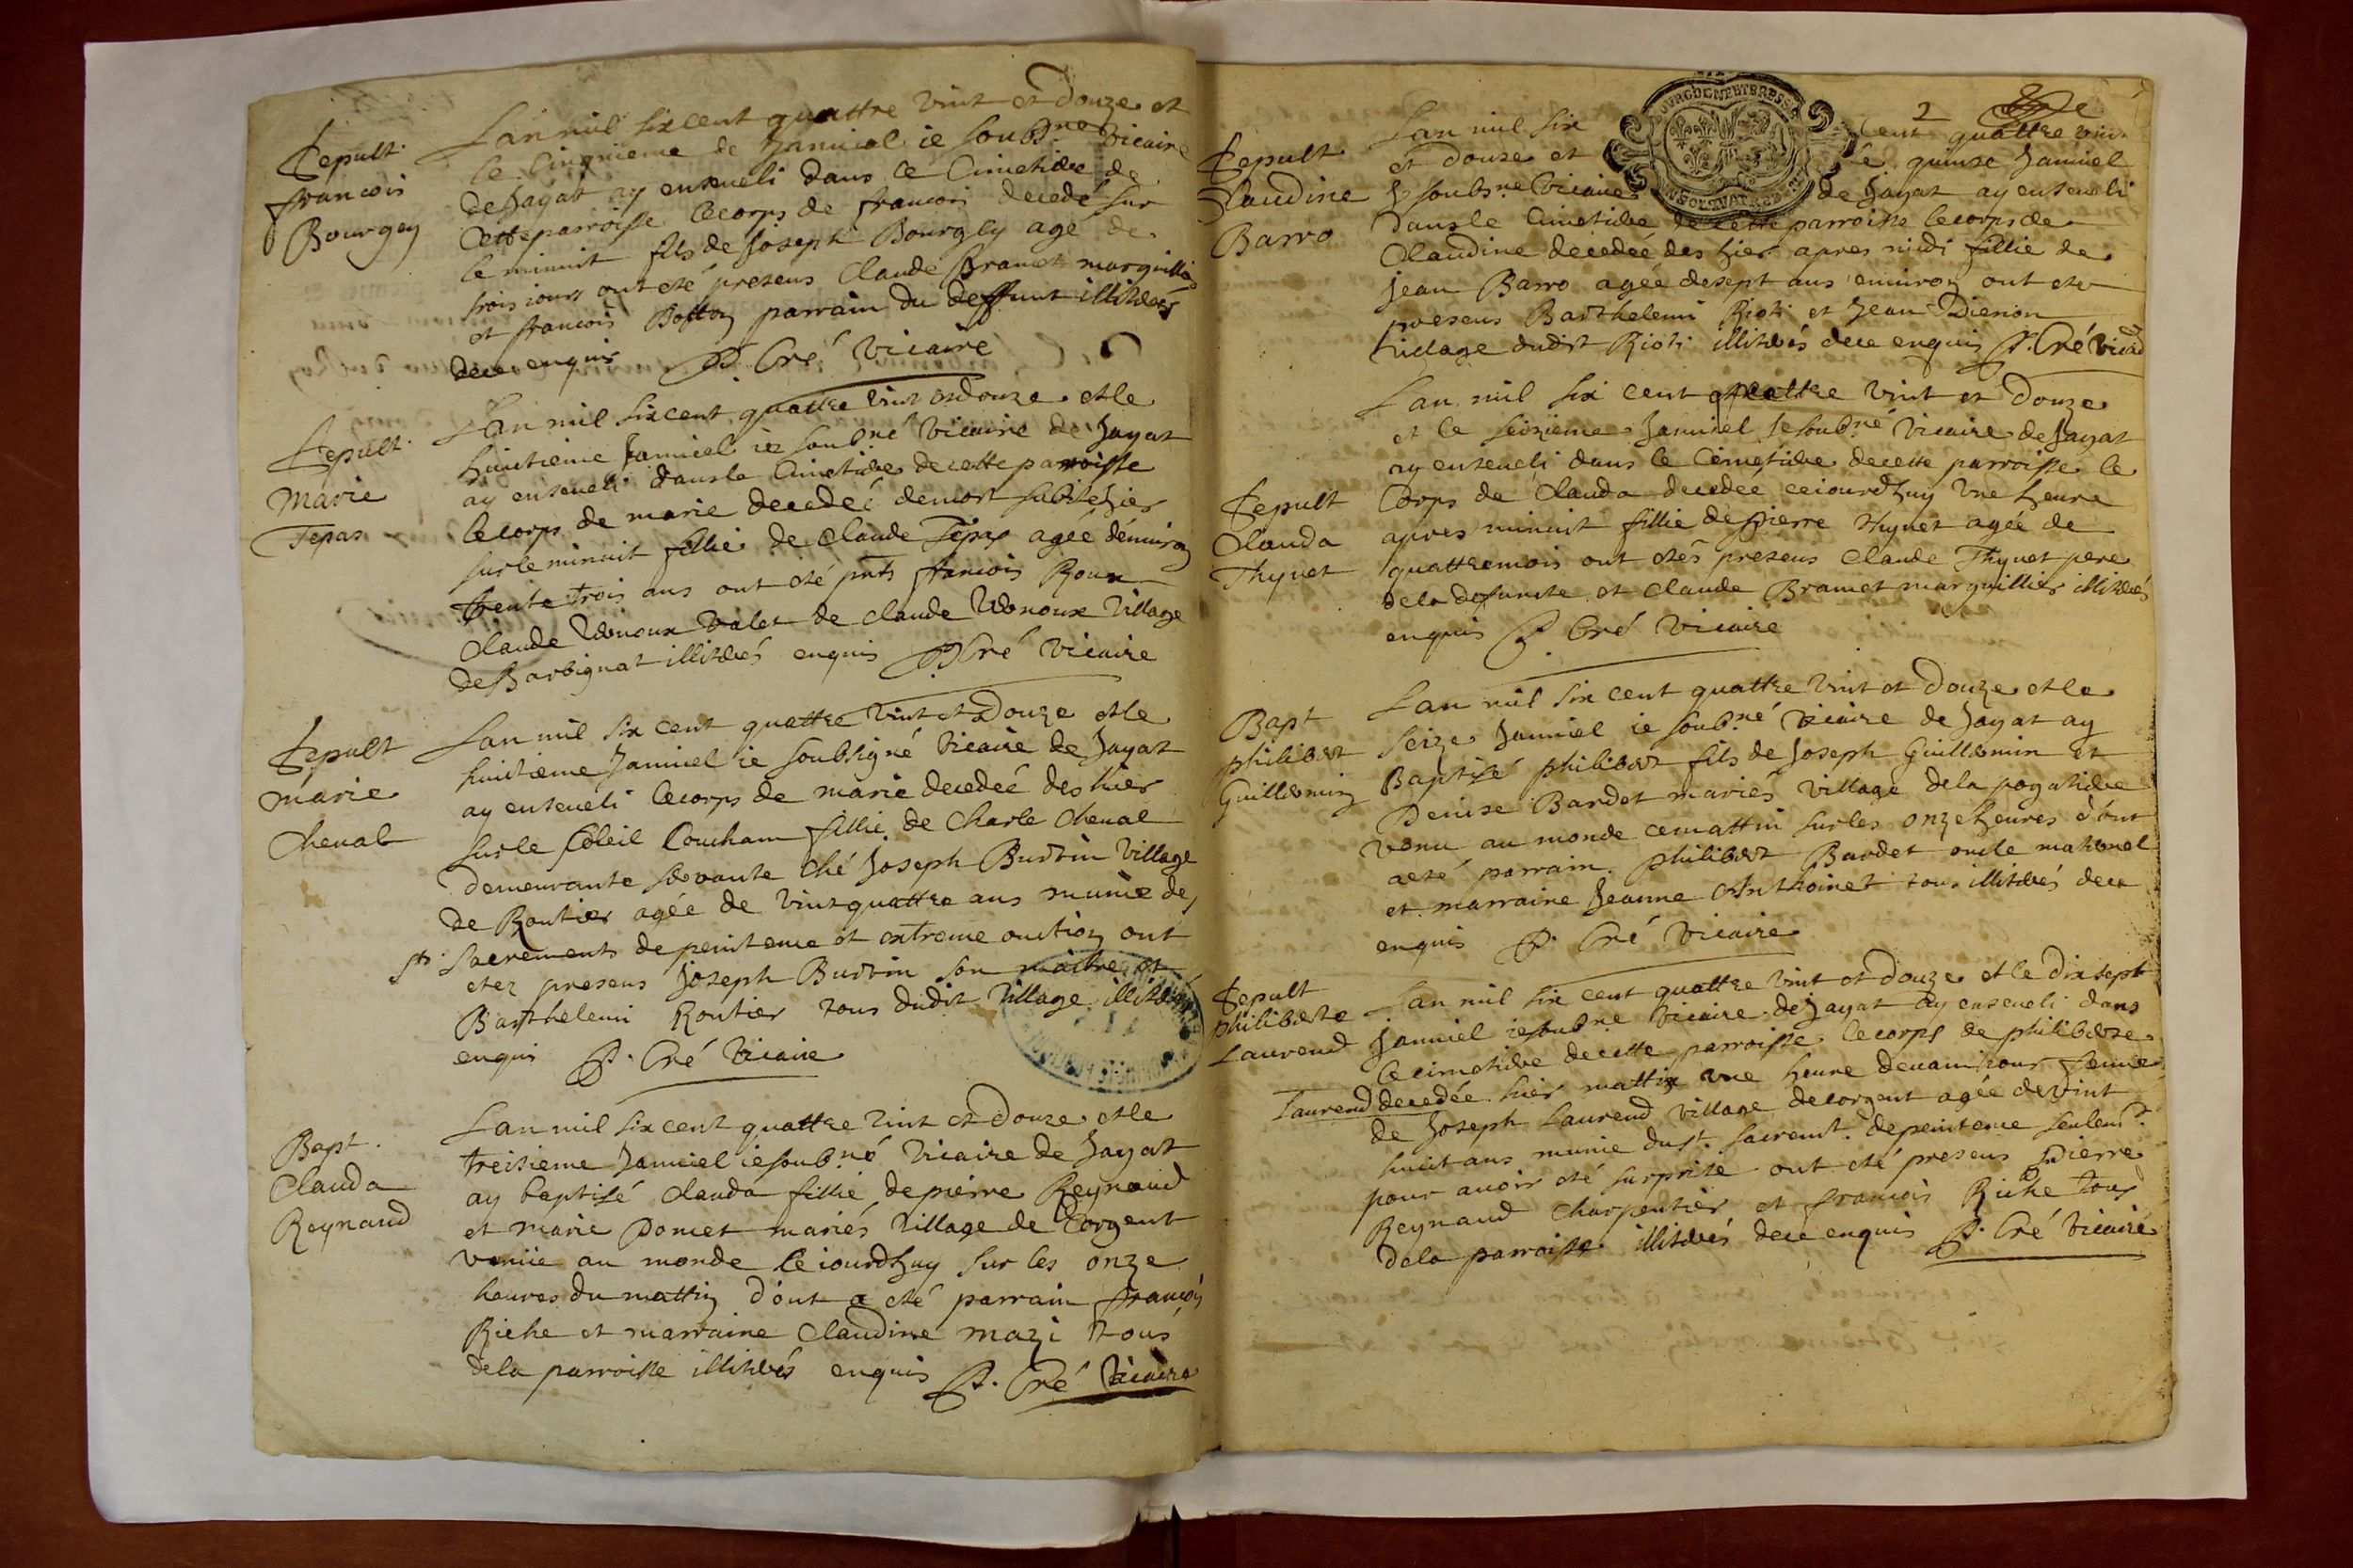 Sepult.
francois
Bourgey
Lan mil six cent quattre vint et douze et
le cinquieme de Januiel ie soubné vicaire
de Jayat ay enseueli dans le Cimetiere de
Cette parroisse le corps de francois decedé sur
le minuit fils de Joseph Bourgey agé de
trois jours ont eté presens Claude Bramet marguillier
et francois Botton parrain du deffunt illiterés
de ce enquis P. Cré vicaire
Sepult.
Marie
Tepas
Lan mil six cent quattre vint et douze et le
huictieme Januiel ie soubné vicaire de Jayat
ay enseueli dans le Cimetiere de cette parroisse
le corps de marie decedeé de mort subite hier
sur le minuit fillie de Claude Tepas agée d'enuiron
trente trois ans ont eté pnts francois Roux
Claude valet de claude village
de Barbignat illiterés enquis P. Cré vicaire
Sepult
marie
Cheual
Lan mil six cent quattre vint et Douze et le
huictieme Januiel ie soubsigné vicaire de Jayat
ay enseueli le corps de marie decedeé des hier
sur le soleil Coucham fillie de Charle Cheual
demeurante seruante ché Joseph Burtin village
de Routier agée de vint quattre ans munie des
sts. sacrements de penitence et extreme onction ont
etez presens Joseph Burtin son maitre et
Barthelemi Routier tous dudit village illiterés
enquis P. Cré vicaire
Bapt.
Clauda
Reynaud
Lan mil six cent quattre vint et douze et le
treisieme Januiel ie soubné vicaire de Jayat
ay baptisé Clauda fillie de pierre Reynaud
et marie Poncet mariés village de Corgent
venüe au monde ce iourdhuy sur les onze
heures du mattin d'ont a eté parrain francois
Riche et marraine Claudine mazi tous
de la parroisse illiterés enquis P. Cré vicaire
2
Sepult
Claudine
Barro
Lan mil six cent quattre vin
et douze et le quinze Januiel
Je soubsne vicaire de Jayat ay enseueli
dans le Cimetiere de cette parroisse le corps de
Claudine decedeé des hier apres midi fillie de
Jean Barro agée de sept ans enuiron ont ete
presens Barthelemi Rioti et Jean Dienon
village dudit Rioti illiterés de ce enquis P. Cré vicaire
Sepult
Clauda
Thynet
Lan mil six cent quattre vint et douze
et le seizieme Januiel Je soubné vicaire de Jayat
ay enseueli dans le Cimetiere de cette parroisse le
Corps de Clauda decedeé ce iourdhuy vne heure
apres minuit fillie de pierre Thynet agée de
quattre mois ont etés presens Claude Thynet pere
de la defuncte et Claude Bramet marguillier illiterés
enquis P. Cré vicaire
Bapt
philibert
Guillemin
Lan mil six cent quattre vint et douze et le
seize Januiel ie soubné vicaire de Jayat ay
Baptisé philibert fils de Joseph Guillemin et
Denise Bardet mariés village de la pogatiere
venu au monde ce mattin sur les onze heures d'ont
a eté parrain philibert Bardet oncle maternel
et marraine Jeanne Anthoinet tous illiterés de ce
enquis P. Cré vicaire
Sepult
philiberte
Laurend
Lan mil six cent quattre vint et douze et le dix sept
Januiel ie soubne vicaire de Jayat ay enseueli dans
le cimetiere de cette parroisse le corps de philiberte
Laurend decedée hier mattin vne heure deuam iour femme
de Joseph Laurend village de corgent agée de vint
huict ans munie du st. sacremt. de penitence seulemt.
pour auoir eté surprise ont eté presens pierre
Reynaud charpentier et francois Riche tous
de la parroisse illiterés de ce enquis P. Cré vicaire